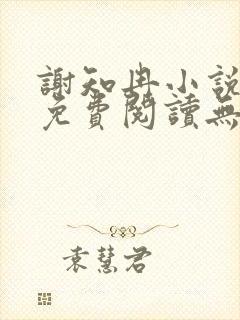 謝知冉小說
免費閱讀無
袁慧君